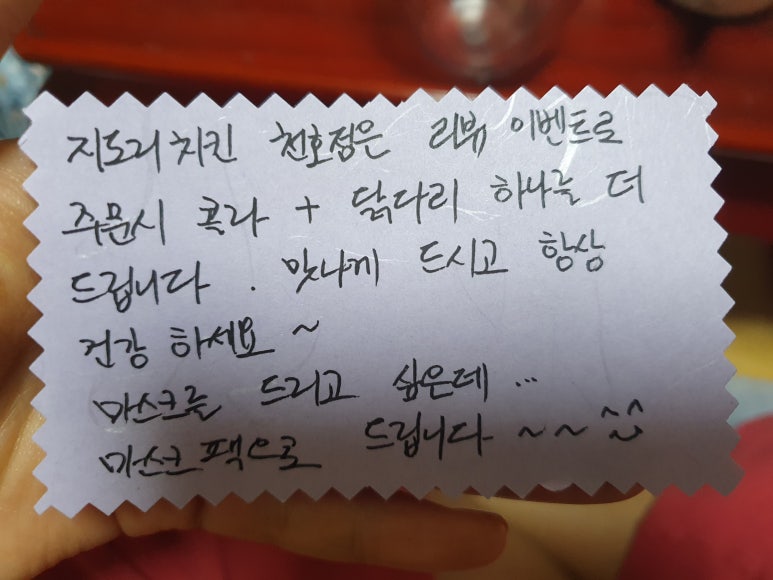 지도리치킨 천호점은 리뷰 이벤트로
주문시 콜라 + 닭다리 하나를 더
드립니다. 맛나게 드시고 항상
건강 하세요 ~
마스크를 드리고 싶은데 ...
마스크팩으로 드립니다 ~~ ^^